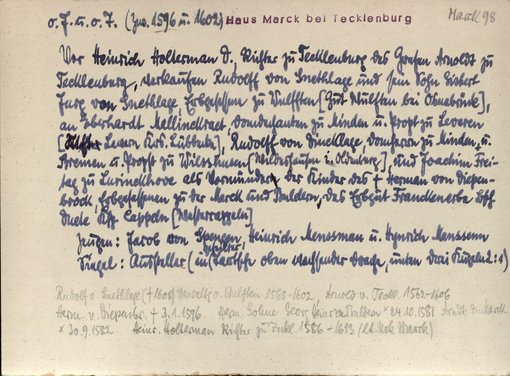 o. J. u. o. T. (Zw. 1596 u. 1602) Haus Marck bei Tecklenburg Marck 98
Vor Heinrich Holterman D., Richter zu Tecklenburg des Grafen Arnoldt zu
Tecklenburg, verkaufen Rudolff von Snethlage und sein Sohn Sivert
Jurg von Snethlage Erbgesessen zu Wulfften [Gut Wulften bei Osnabrück],
an Everhardt Mellinckraet Domdechanten zu Minden u. Propst zu Leveren
[Levern Krs. Lübbecke], Rudolff von Dincklage, Domherrn zu Minden u.
Bremen u. Propst zu Wildeshusen [Wildeshausen i. Oldenburg], und Joachim
zu als Vormündern der Kinder des † Herman von Diepen-
brock, Erbgesessen zu der Marck und Buldern, das Erbgut Franckenerbe
Ksp. Cappeln [Westerkappeln]
Zeugen: Jacob von Heinrich Menesman u. Hynrich Mensenn
Siegel: Aussteller (in oben wachsender unten drei Kugeln 2:1)
Rudolf v. Snethlage († 1608) v. Wulften 1562-1602, Arnold v. Teckl. 1562-1606
Herm. v. Diepenbr. † 3.1.1596 Herm. Söhne Georg Heinr. zu Buldern * 24.10.1581 Arndt zu Marck
* 30.9.1582 Heinr. Holterman Richter zu 1586 - (lt. Urk. Marck)